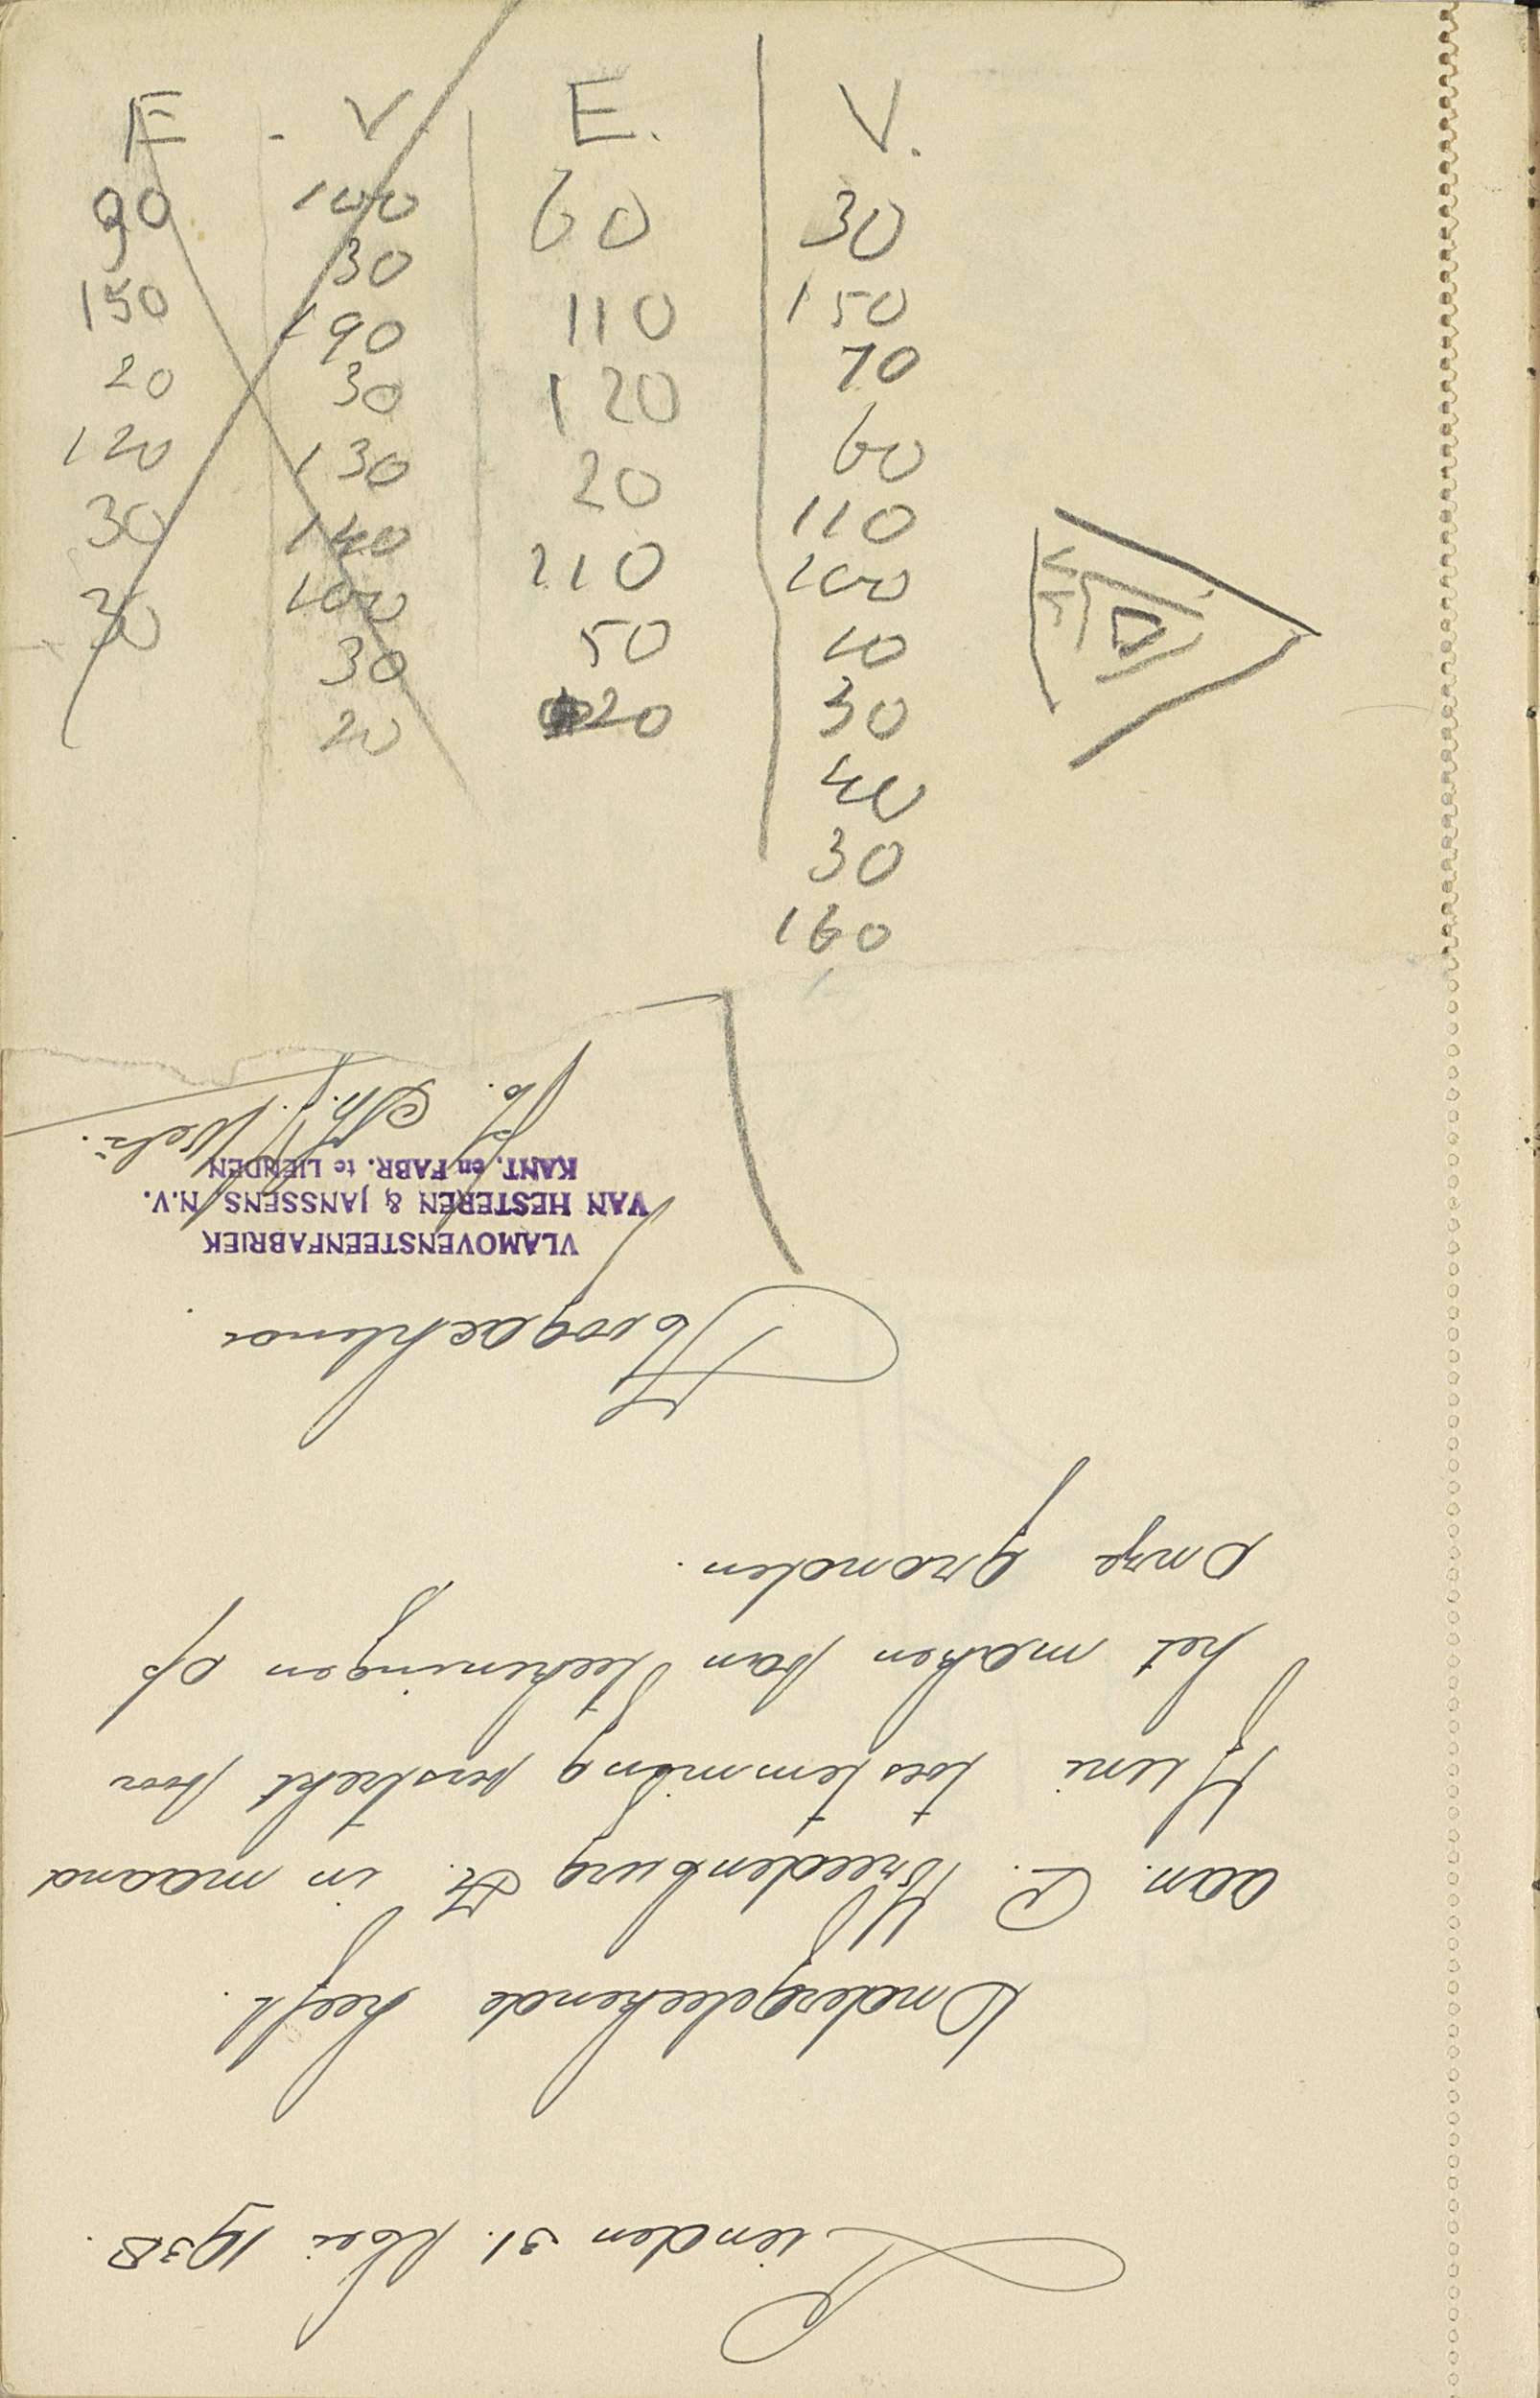 E - V E. V.
90 100 60 30
150 30 110 150
20 190 120 70
120 30 20 60
30 130 110 110
30 140 50 100
100 20 10
30 30
20 40
30
160
Lienden 31. Mei 1938.
Ondergeteekende heeft
aan C. Vreedenburg in maand
Juni toestemming verstrekt voor
het maken van teekeningen op
onze gronden.
Hoogachtend
VLAMOVENSTEENFABRIEK
VAN HESTEREN & JANSSENS N.V.
KANT. en FABR. te LIENDEN